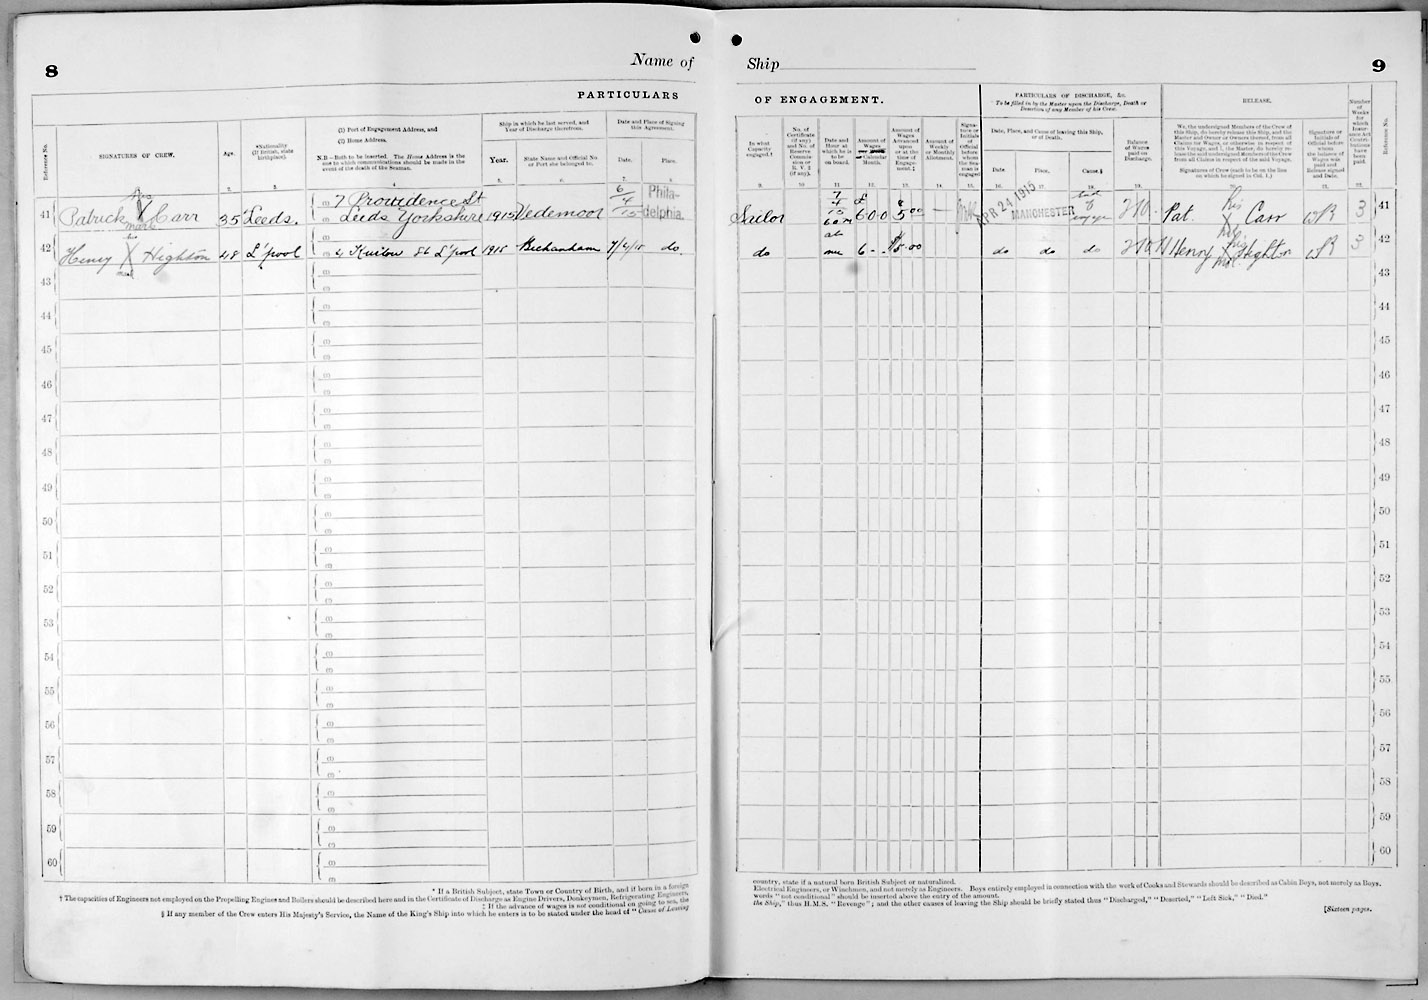 8
Name of
Ship
9
PARTICULARS
OF ENGAGEMENT.
PARTICULARS OF DISCHARGE, &c.
To be filled in by the Master upon the Discharge, Death or Desertion of any Member of his Crew.
RELEASE.
Reference No.
SIGNATURES OF CREW.
Age.
*Nationality
(If British, state birthplace).
(1) Port of Engagement Address, and
(2) Home Address.
N.B.—Both to be inserted. The Home Address is the one to which communications should be made in the event of the death of the Seaman.
Ship in which he last served, and Year of Discharge therefrom.
Year.
State Name and Official No. or Port she belonged to.
Date and Place of Signing this Agreement.
Date.
Place.
In what Capacity engaged.†
No. of Certificate (if any) and No. of Reserve Commission or R. V. 2 (if any).
Date and Hour at which he is to be on board.
Amount of Wages Calendar Month.
Amount of Wages Advanced upon or at the time of Engagement.‡
Amount of Weekly or Monthly Allotment.
Signature or Initials of Official before whom the Seaman is engaged
Date, Place, and Cause of leaving this Ship, or of Death.
Date.
Place.
Cause.§
Balance of Wages paid on Discharge.
We, the undersigned Members of the Crew of this Ship, do hereby release this Ship, and the Master and Owner or Owners thereof, from all Claims for Wages, or otherwise in respect of this Voyage, and I, the Master, do hereby release the said undersigned Members of the Crew from all Claims in respect of the said Voyage.
Signatures of Crew (each to be on the line on which he signed in Col. 1.)
Signature or Initials of Official before whom the balance of Wages was paid and Release signed and Date.
Number of Weeks for which Insurance Act Contributions have been paid.
Reference No.
41 Patrick his X mark Carr 35 Leeds. 7 Providence St
Leeds Yorkshire 1915 Vedemoor 6/4/15 Philadelphia.
Sailor 7/4/15 6 a m £ 6.0.0 5.00 — APR 24 1915 MANCHESTER Pat. his X Carr WR 3 41
42 Henry his X Highton 48 L'pool 4 St L'pool 1915 7/4/15 do
do at 6 - - 15.00 do do do Henry his X Highton WR 3 42
43 43
44 44
45 45
46 46
47 47
48 48
49 49
50 50
51 51
52 52
53 53
54 54
55 55
56 56
57 57
58 58
59 59
60 60
* If a British Subject, state Town or Country of Birth, and if born in a foreign
country, state if a natural born British Subject or naturalized.
† The capacities of Engineers not employed on the Propelling Engines and Boilers should be described here and in the Certificate of Discharge as Engine Drivers, Donkeymen, Refrigerating Engineers,
Electrical Engineers, or Winchmen, and not merely as Engineers. Boys entirely employed in connection with the work of Cooks and Stewards should be described as Cabin Boys, not merely as Boys.
‡ If the advance of wages is not conditional on going to sea, the
words "not conditional" should be inserted above the entry of the amount.
§ If any member of the Crew enters His Majesty's Service, the Name of the King's Ship into which he enters is to be stated under the head of "Cause of Leaving
the Ship," thus H.M.S. "Revenge"; and the other causes of leaving the Ship should be briefly stated thus "Discharged," "Deserted," "Left Sick," "Died."
[Sixteen pages.